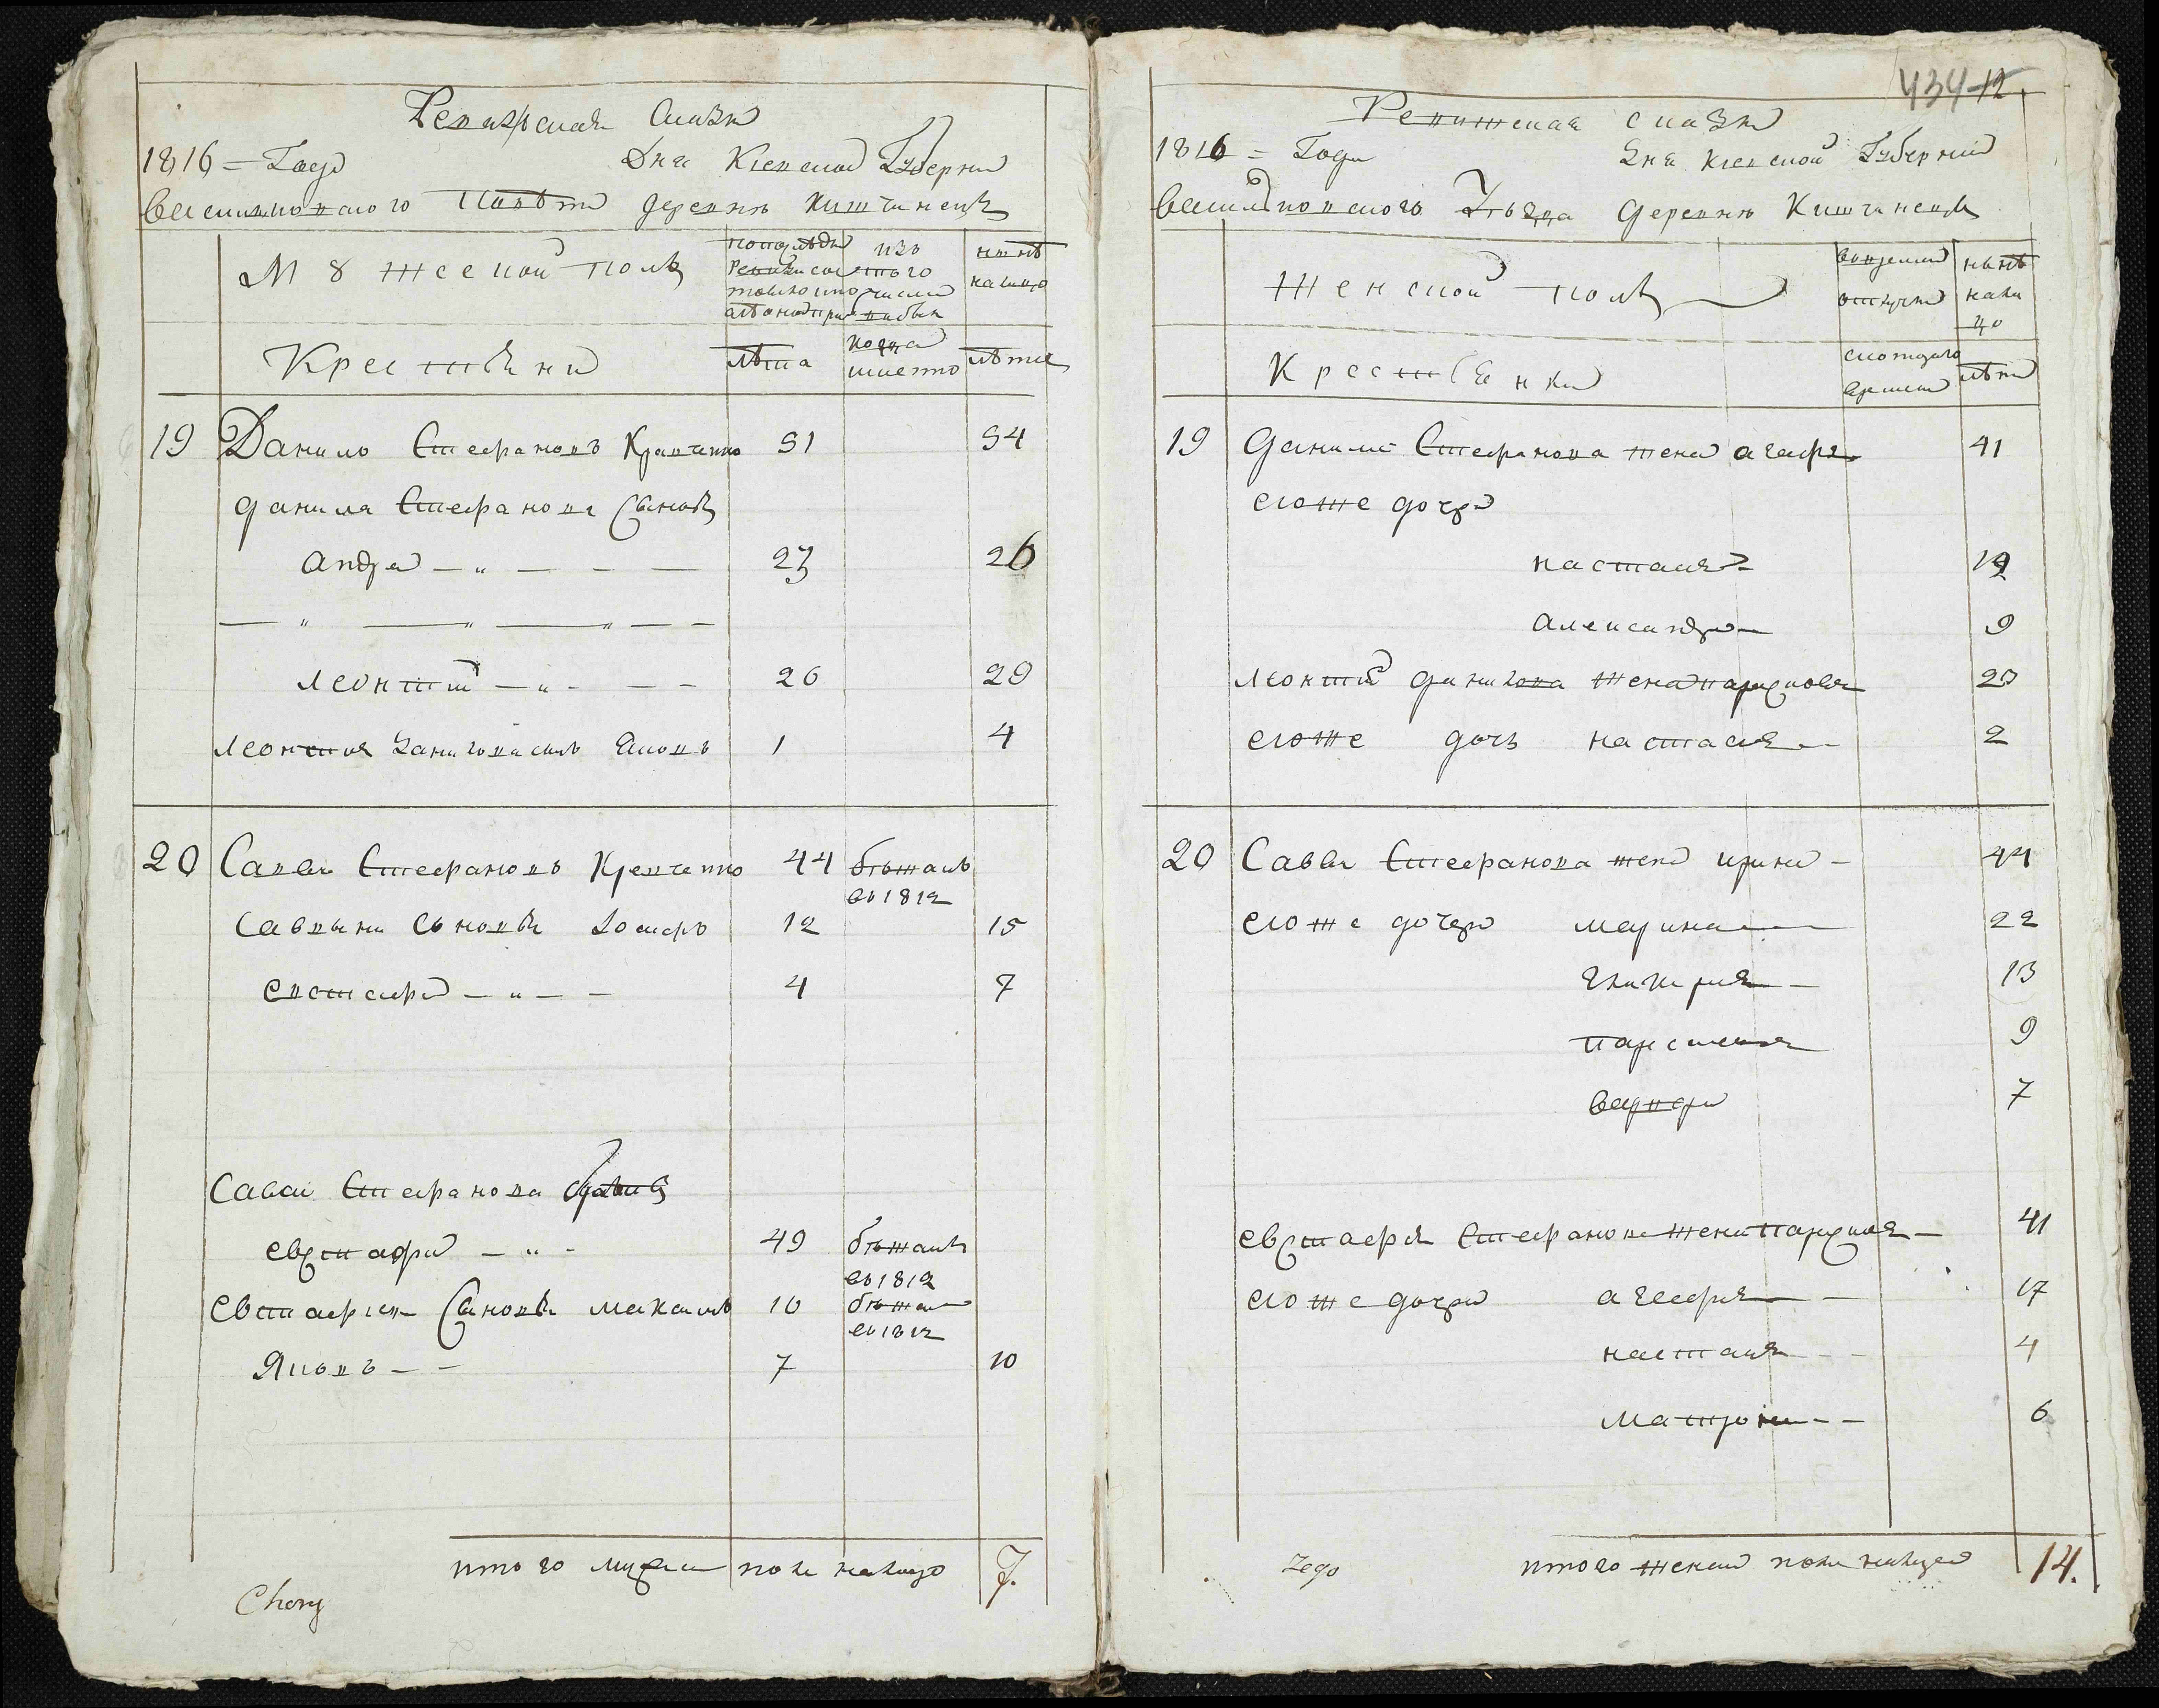 Ревизская Сказка
1816 = Году Дня Киевской Губернии
Васильковского Повета деревне Киштинецъ
Мужеской полъ
по последней ревизии состояло и после оной прибыло
изъ того числа выбыло
ныне на лицо
Крестьяни
лета
когда имянно
лета
19 Данило Стефановъ Кравченко 51 54
Данила Стефанова Сыновья
Андрей — „ — — — 23 26
— „ — „ — „ — —
Леонтий — „ - — — 26 29
Леонтия Данилова сынъ Яковъ 1 4
20 Савва Стефановъ Кравченко 44 бежалъ
въ 1812
Саввыни Сыновья Іосифъ 12 15
Евстафий — „ — — 4 7
Саввы Стефанова братья
Евстафий — „ - 49 бежалъ
въ 1812
Евстафия Сыновья Михаилъ 10 бежалъ
въ 1812
Яковъ — — 7 10
итого мужеска пола налицо 7.
434 12
Ревижская сказка
1816 = Года Дня Киевской Губернии
Васильковского Уезда деревне Киштинецъ
Женской полъ
во временной отлучке
ныне нали
цо
Крестьянки
с которого времени
лета
19 Данила Стефанова жена Агафия 41
его же дочери
Настасия 12
Александра 9
Леонтия Данилова жена Парасковия 23
его же дочь Настасия 2
20 Саввы Стефанова жена Ирина - 44
его же дочери Марина 22
Гликерия 13
Парасковия 9
Варвара 7
Евстафия Стефанова жена Парасковия — 41
его же дочери Агафия — 17
Настасия - - 4
Матрона - - 6
итого женска пола налицо 14.